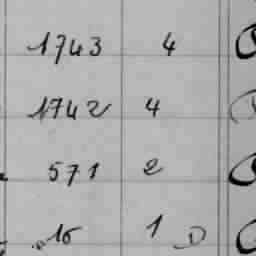 1743 4
1742 4
571 2
16 1